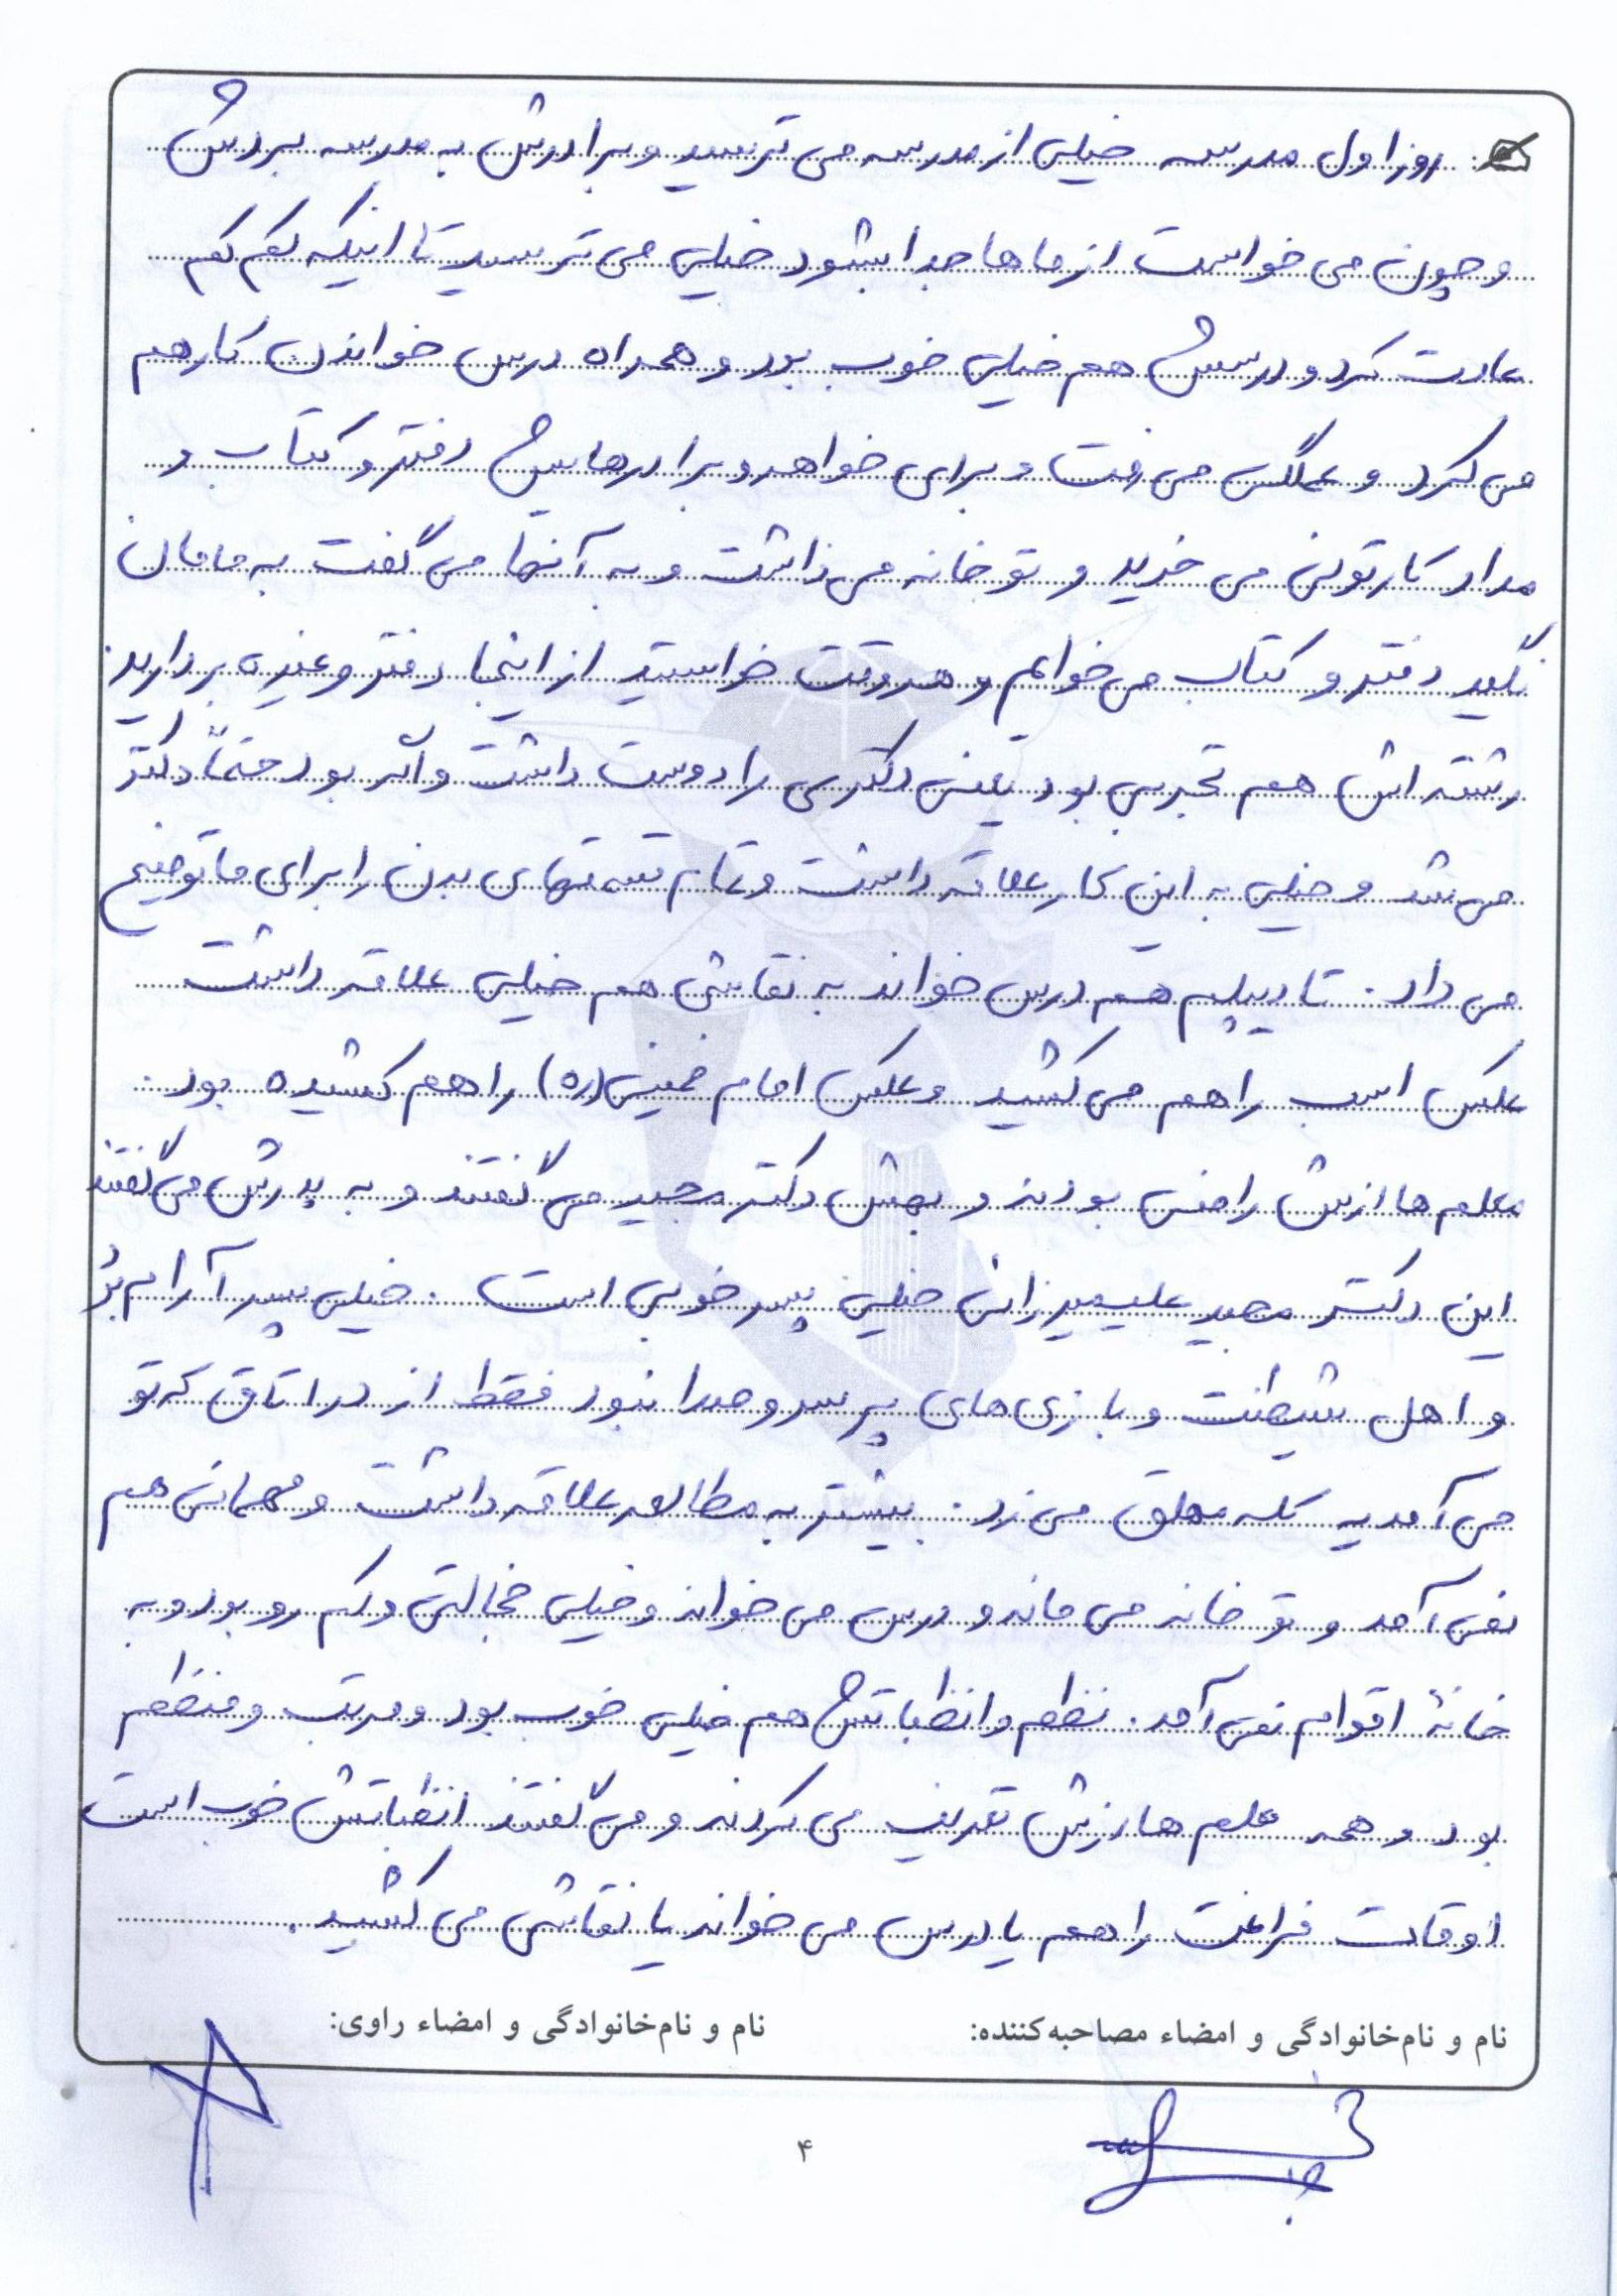 روز اول مدرسه خیلی از مدرسه می ترسید و برادرش به مدرسه بردش
و چون می خواست از ماها جدا بشود خیلی می ترسید تا اینکه کم کم
عادت کرد و درسش هم خیلی خوب بود و همراه درس خواندن کار هم
می کرد و عملگی می رفت و برای خواهر و برادرهایش دفتر و کتاب و
مداد کارتونی می خرید و تو خانه می ذاشت و به آنها می گفت به مامان
نگید دفتر و کتاب می خوایم و هر وقت خواستید از اینجا دفتر و غیره بردارید.
رشته اش هم تجربی بود یعنی دکتری را دوست داشت و اگر بود حتماً دکتر
می شد و خیلی به این کار علاقه داشت و تمام قسمتهای بدن را برای ما توضیح
می داد. تا دیپلم هم درس خواند به نقاشی هم خیلی علاقه داشت
عکس اسب را هم می کشید و عکس امام خمینی (ره) را هم کشیده بود.
معلم ها ازش راضی بودند و بهش دکتر مجید می گفتند و به پدرش می گفتند
این دکتر مجید علیمیرزائی خیلی پسر خوبی است. خیلی پسر آرام بود
و اهل شیطنت و بازی های پر سر و صدا نبود فقط از در اتاق که تو
می آمد یه کله معلق می زد. بیشتر به مطالعه علاقه داشت و مهمانی هم
نمی آمد و تو خانه می ماند و درس می خواند و خیلی خجالتی و کم رو بود و به
خانهٔ اقوام نمی آمد. نظم و انظباتش هم خیلی خوب بود و مرتب و منظم
بود و همه معلم ها ازش تعریف می کردند و می گفتند انظباتش خوب است
اوقات فراغت را هم یا درس می خواند یا نقاشی می کشید.
نام و نام‌خانوادگی و امضاء مصاحبه‌کننده: نام و نام‌خانوادگی و امضاء راوی:
۴